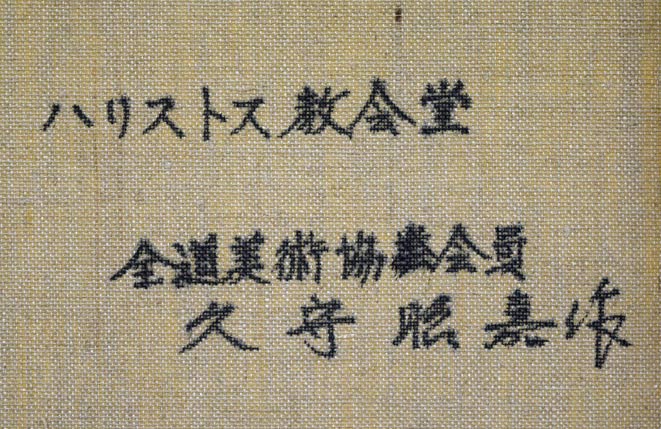 ハリストス教会堂
全道美術協会会員
久守昭嘉作